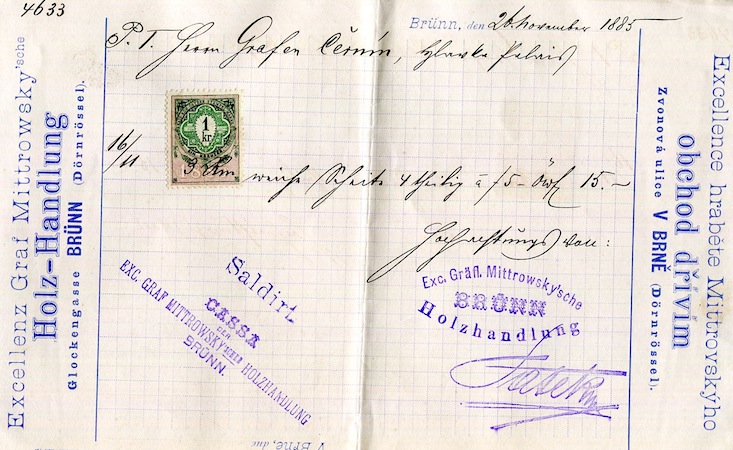 4633
Brünn, den 26. November 1885
P. T. Herrn Grafen Černín, Palais
Excellenz Graf Mittrowsky'sche
Holz-Handlung
Glockengasse BRÜNN (Dörnrössel).
1
kr
16/11 3 Rm weiche Scheite 4 theilig à f 5 - öW f 15.-
Hochachtungsvoll:
Saldirt
CASSA
DER
EXC. GRAF MITTROWSKY'SCHEN HOLZHANDLUNG
BRÜNN.
Exc. Gräfl. Mittrowsky'sche
BRÜNN
Holzhandlung
V Brně, dne
Excellence hraběte Mittrovského
obchod dřívím
Zvonová ulice V BRNĚ (Dörnrössel).